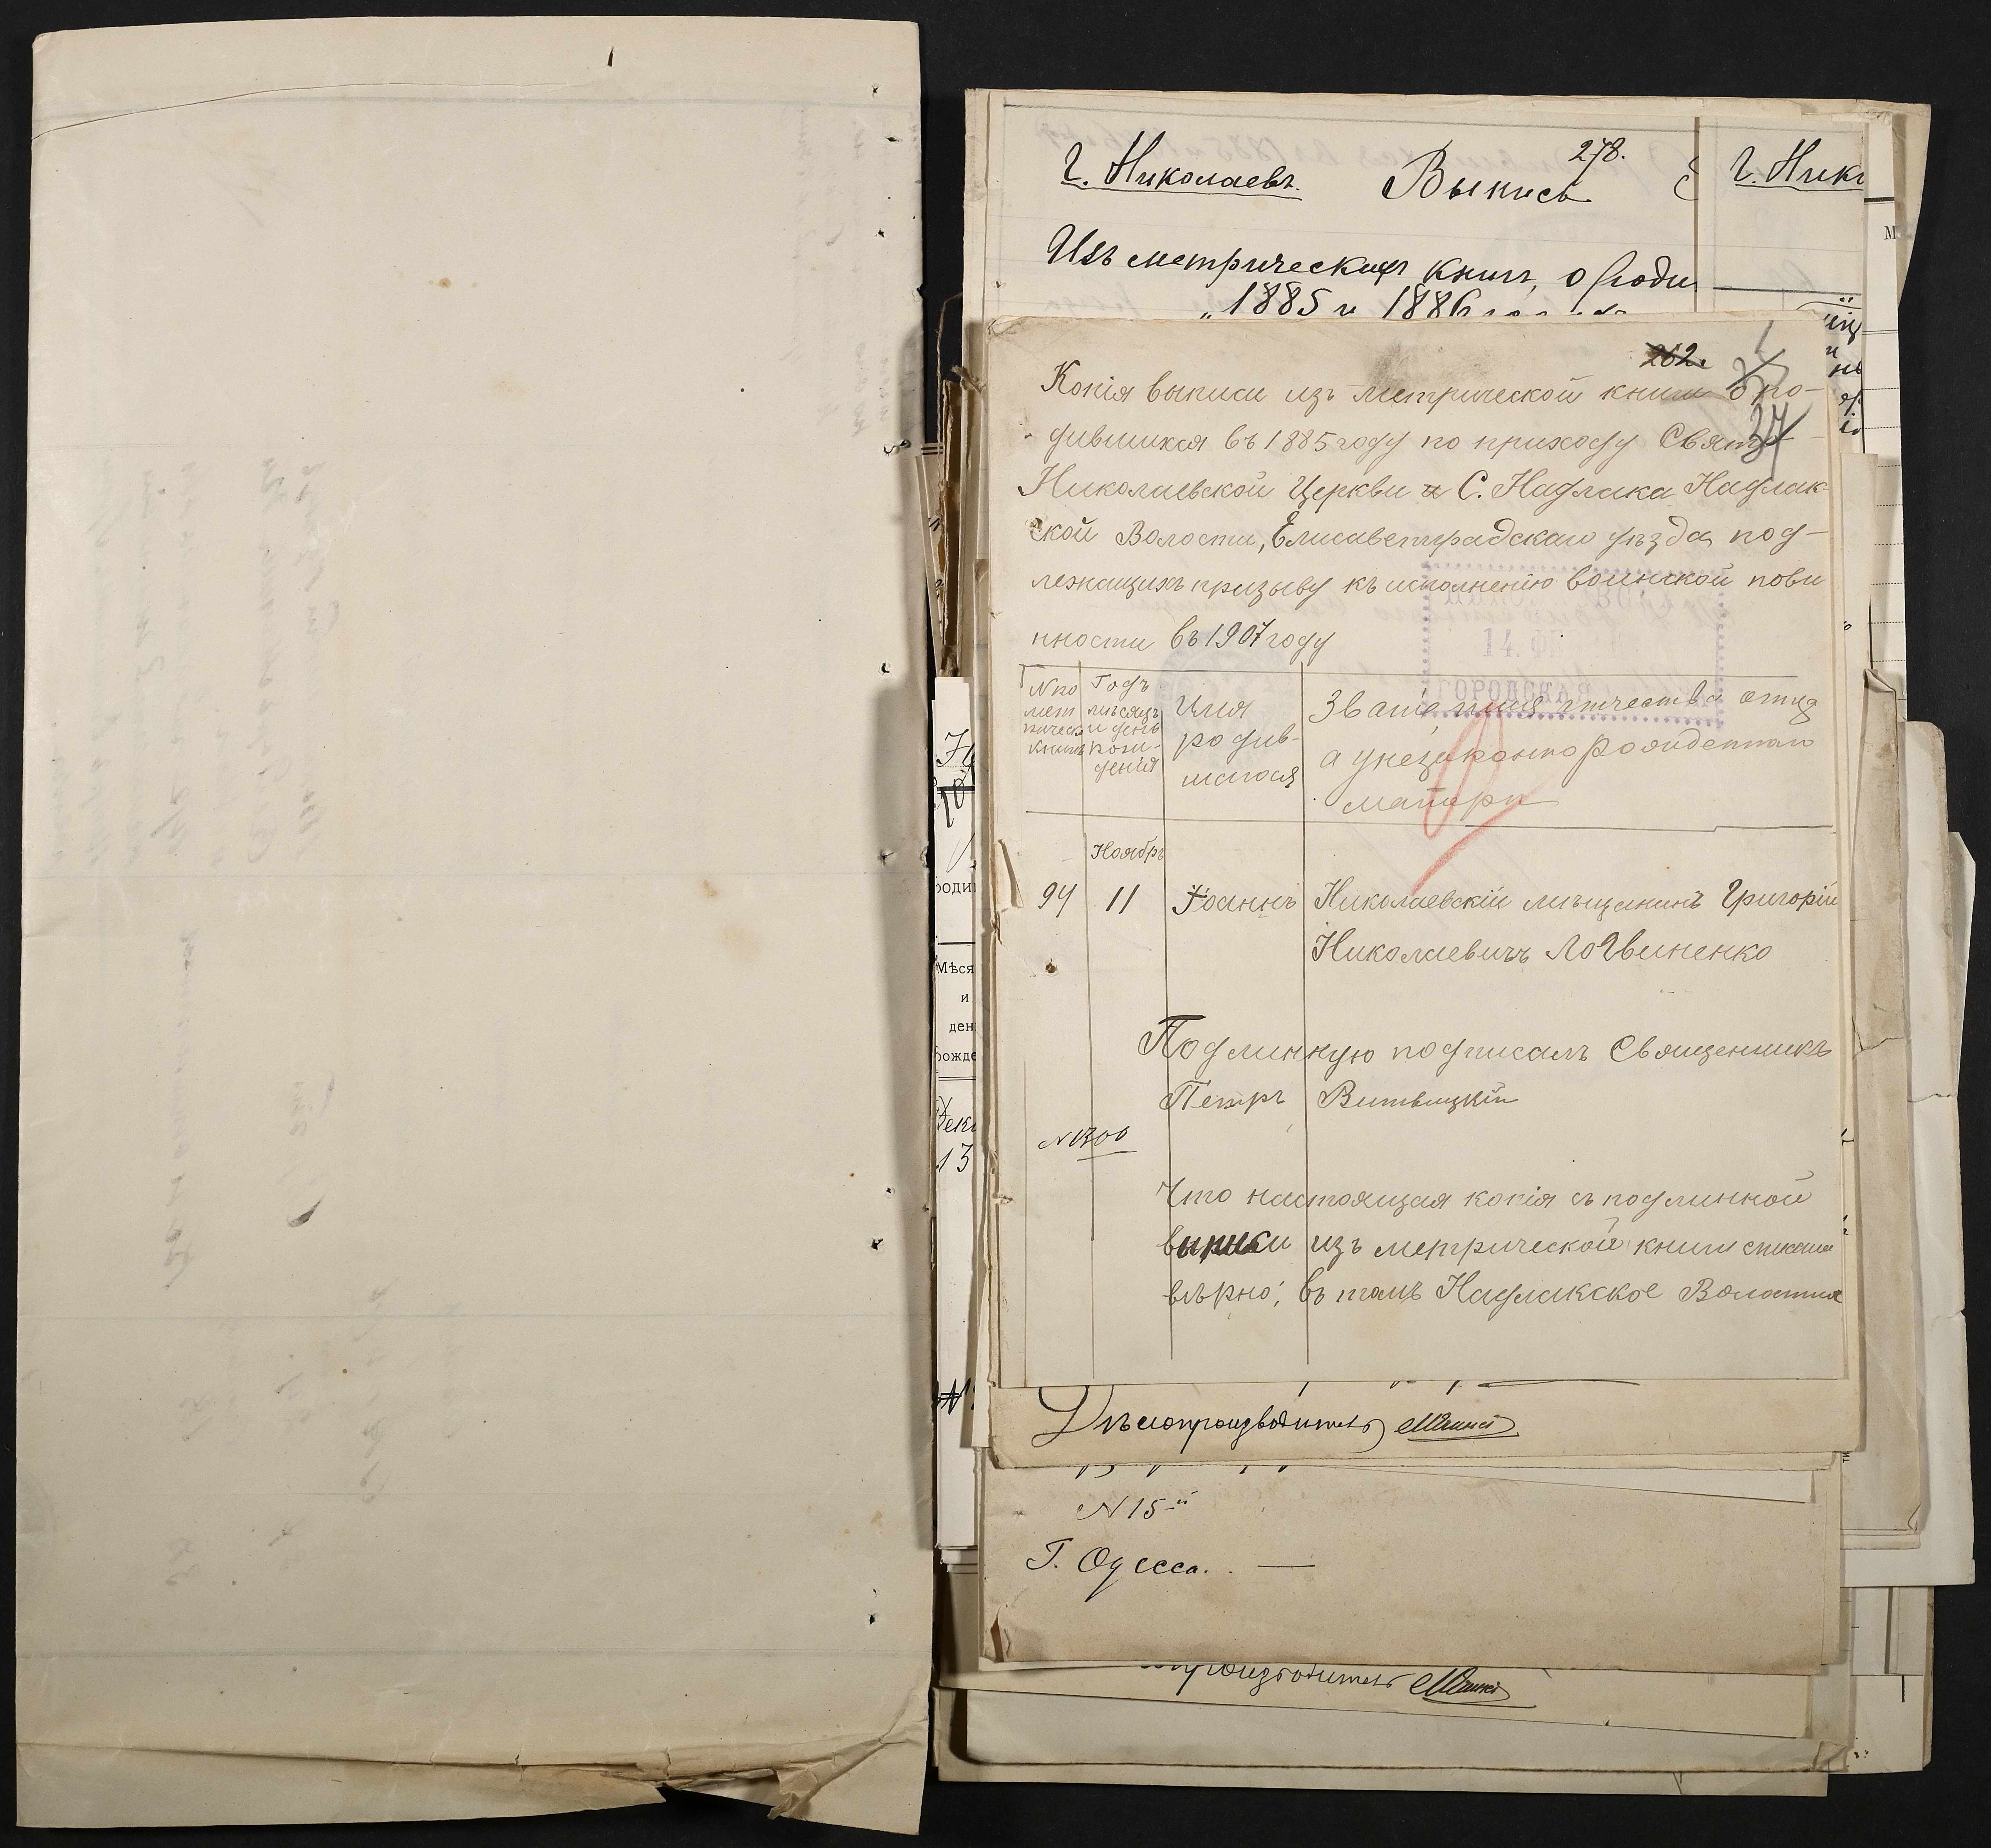 278.
Г. Николаевъ. Выпись Г. Нико
Изъ метрическихъ книгъ, о роди
"1885 и 1886
262.
37
Копія выписи изъ метрической книги о ро-
дившихся въ 1885 году по приходу Свято-
Николаевской Церкви С. Надлака Надлак-
ской Волости, Елисаветградскаго уѣзда, под-
лежащихъ призыву къ исполненію воинской пови
нности въ 1907 году
14. Ф
ГОРОДСКАЯ
№ по метрическ книгѣ
Годъ мѣсяцъ и день рожденія
Имя родив-шагося
Званіе имя отчество отца
а у незаконно рожденнаго
матери
Ноябрь
94 11 Іоаннъ Николаевскій мѣщанинъ Григорій
Николаевичъ Логвиненко
Подлинную подписалъ Священникъ
Петръ Витвицкій
№ 1300
Что настоящая копія съ подлинной
выписи изъ метрической книги списана
вѣрно, въ томъ Надлакское Волостное
Дѣлопроизводитель
N 15-й
Г. Одесса. —
производитель
роди
Мѣся
и
ден
рожде
Дек
13
М